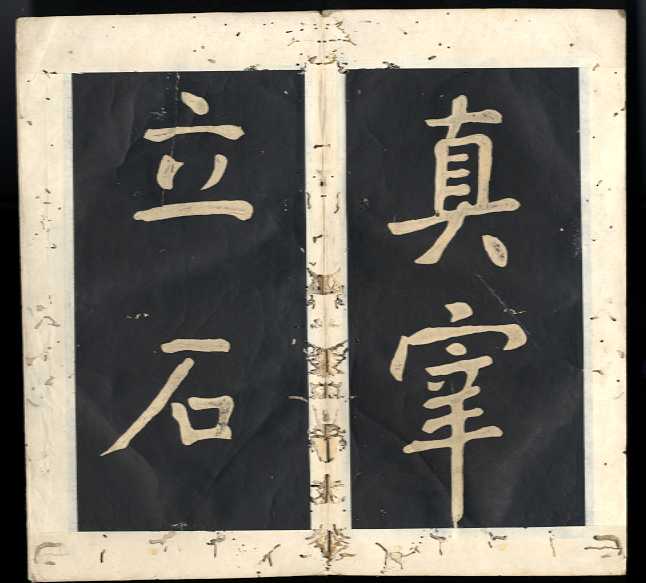 真宰
立石